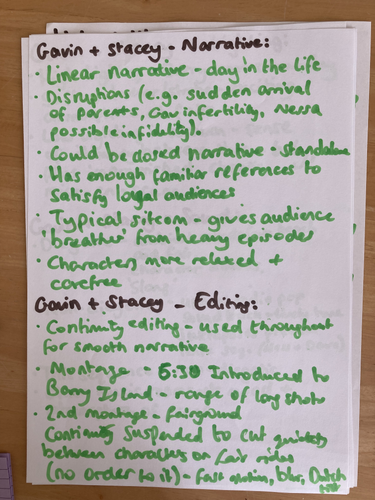 Gavin + Stacey - Narrative:
• Linear narrative - day in the life
• Disruptions (e.g. sudden arrival
of parents, Gav infertility, Nessa
possible infidelity).
• Could be closed narrative - standalone
• Has enough familiar references to
satisfy loyal audiences
• Typical sitcom - gives audience
'breather' from heavy episodes
• Characters more relaxed +
carefree
Gavin + Stacey - Editing:
• Continuity editing - used throughout
for smooth narrative
• Montage - 5:30 Introduced to
Barry Island - range of long shots
• 2nd montage - fairground
Continuity suspended to cut quickly
between characters on fair rides
(no order to it) - fast motion, blur, Dutch
tilt